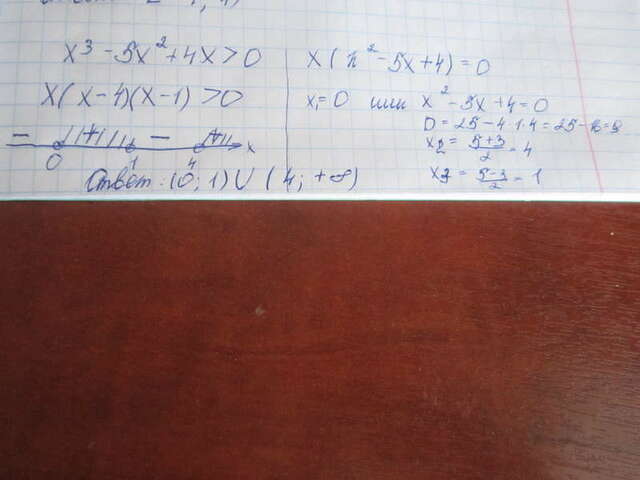 x³ - 5x² + 4x > 0
x(x-4)(x-1) > 0
- + - + x
0 1 4
Ответ: (0; 1) ∪ (4; +∞)
x(x² - 5x + 4) = 0
x₁ = 0 или x² - 5x + 4 = 0
D = 25 - 4·1·4 = 25 - 16 = 9
x₂ = (5+3)/2 = 4
x₃ = (5-3)/2 = 1